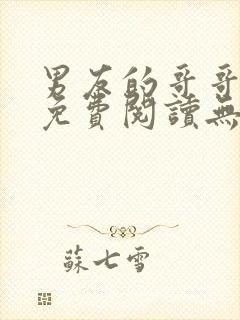 男友的哥哥
免費閱讀無
蘇七雪